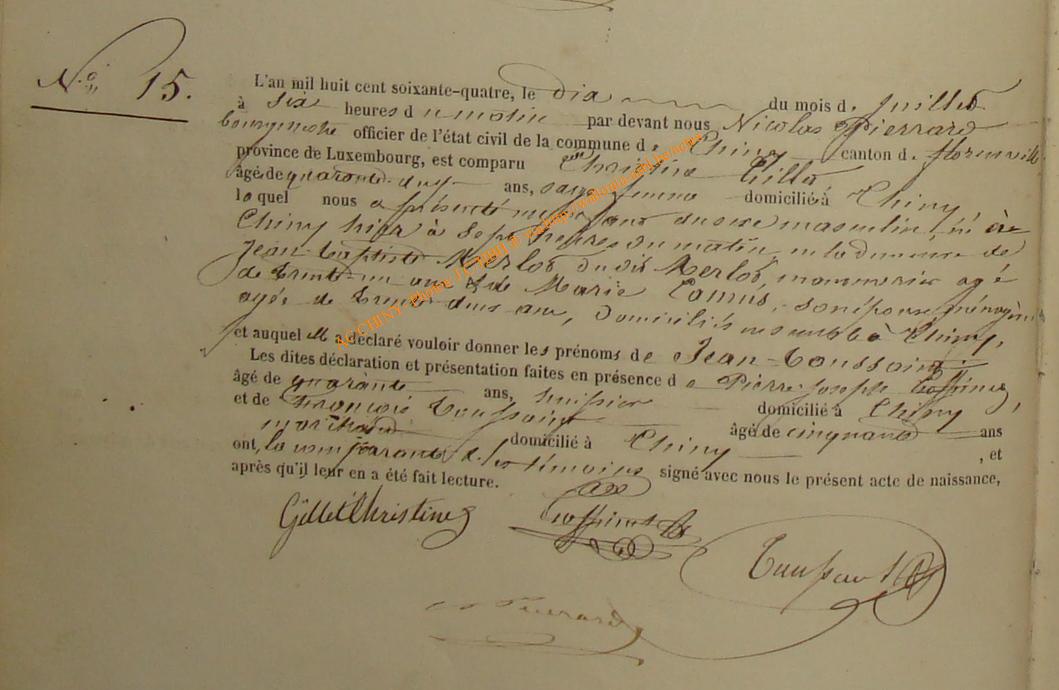 N° 15.
L'an mil huit cent soixante-quatre, le dix du mois de Juillet
à six heures du matin par devant nous Nicolas Pierrard
bourgmestre officier de l'état civil de la commune de Chiny canton de florenville
province de Luxembourg, est comparu Christine Gillet
âgée de quarante-deux ans, sage femme domiciliée à Chiny
laquel nous a présenté un enfant du sexe masculin, né à
Chiny hier à sept heures du matin, en la demeure de
Jean-Baptiste Merlot, du dit Merlot, manouvrier agé
de trente-un ans & de Marie Camus, son épouse ménagère
agée de trente deux ans, domiciliés ensemble à Chiny,
et auquel elle a déclaré vouloir donner les prénoms de Jean-Toussaint
Les dites déclaration et présentation faites en présence de Pierre-Joseph
âgé de quarante ans, huissier domicilié à Chiny,
et de François Toussaint âgé de cinquante ans
marchand domicilié à Chiny, et
ont, la comparante & les témoins signé avec nous le présent acte de naissance,
après qu'il leur en a été fait lecture.
Gillet Christine
Toussaint
Pierrard
ACCHINY